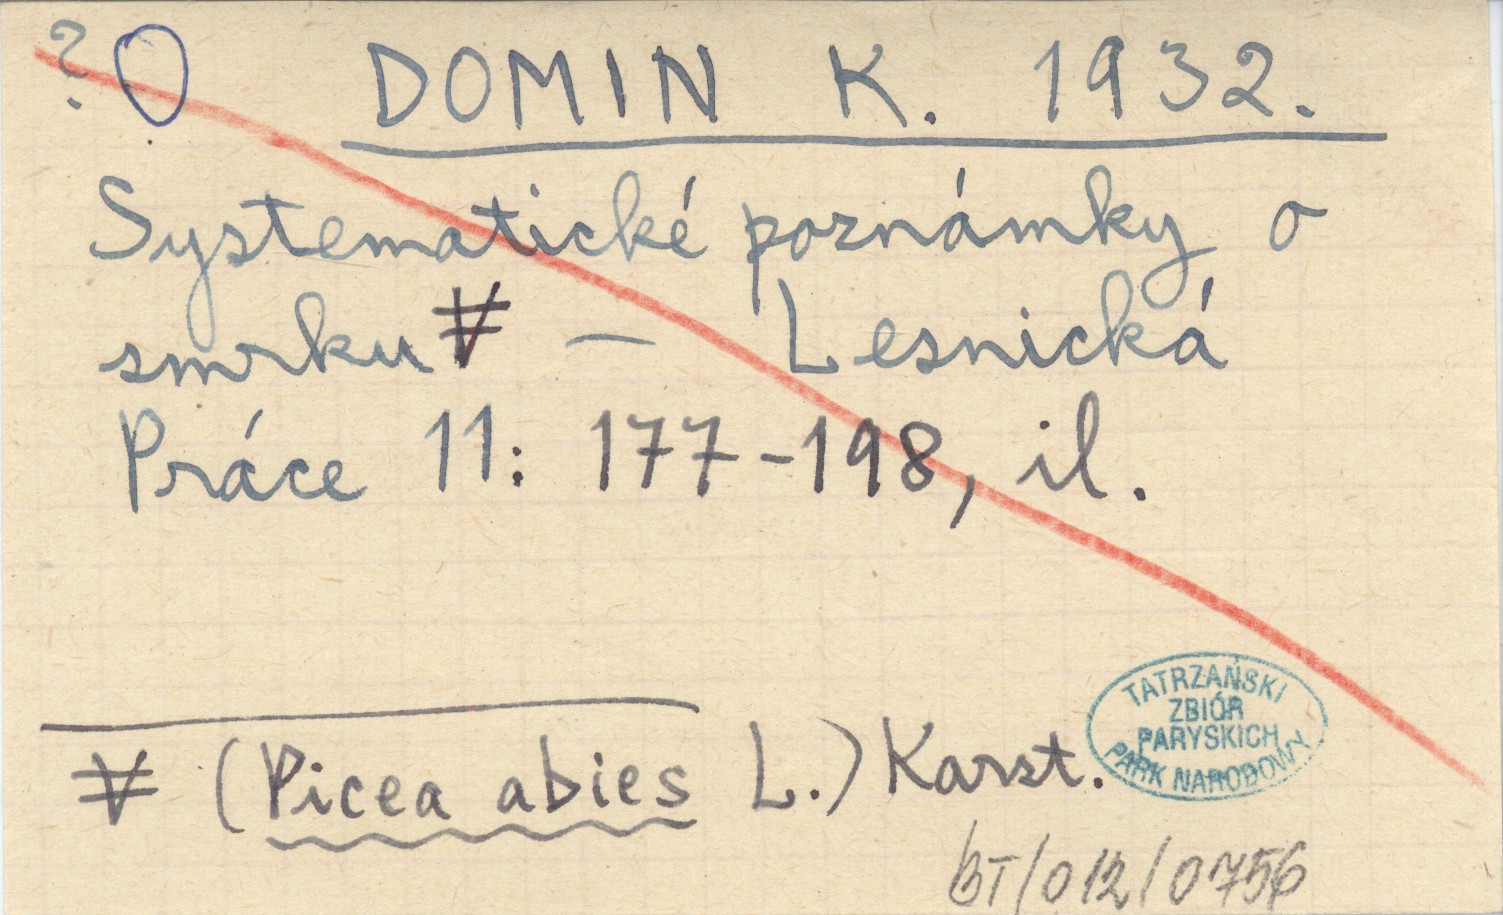 ? O DOMIN K. 1932.
Systematické poznámky o
smrku ⩝ — Lesnická
Práce 11: 177-198, il.
⩝ (Picea abies L.) Karst.
TATRZAŃSKI
ZBIÓR
PARYSKICH
PARK NARODOWY
BT/012/0756